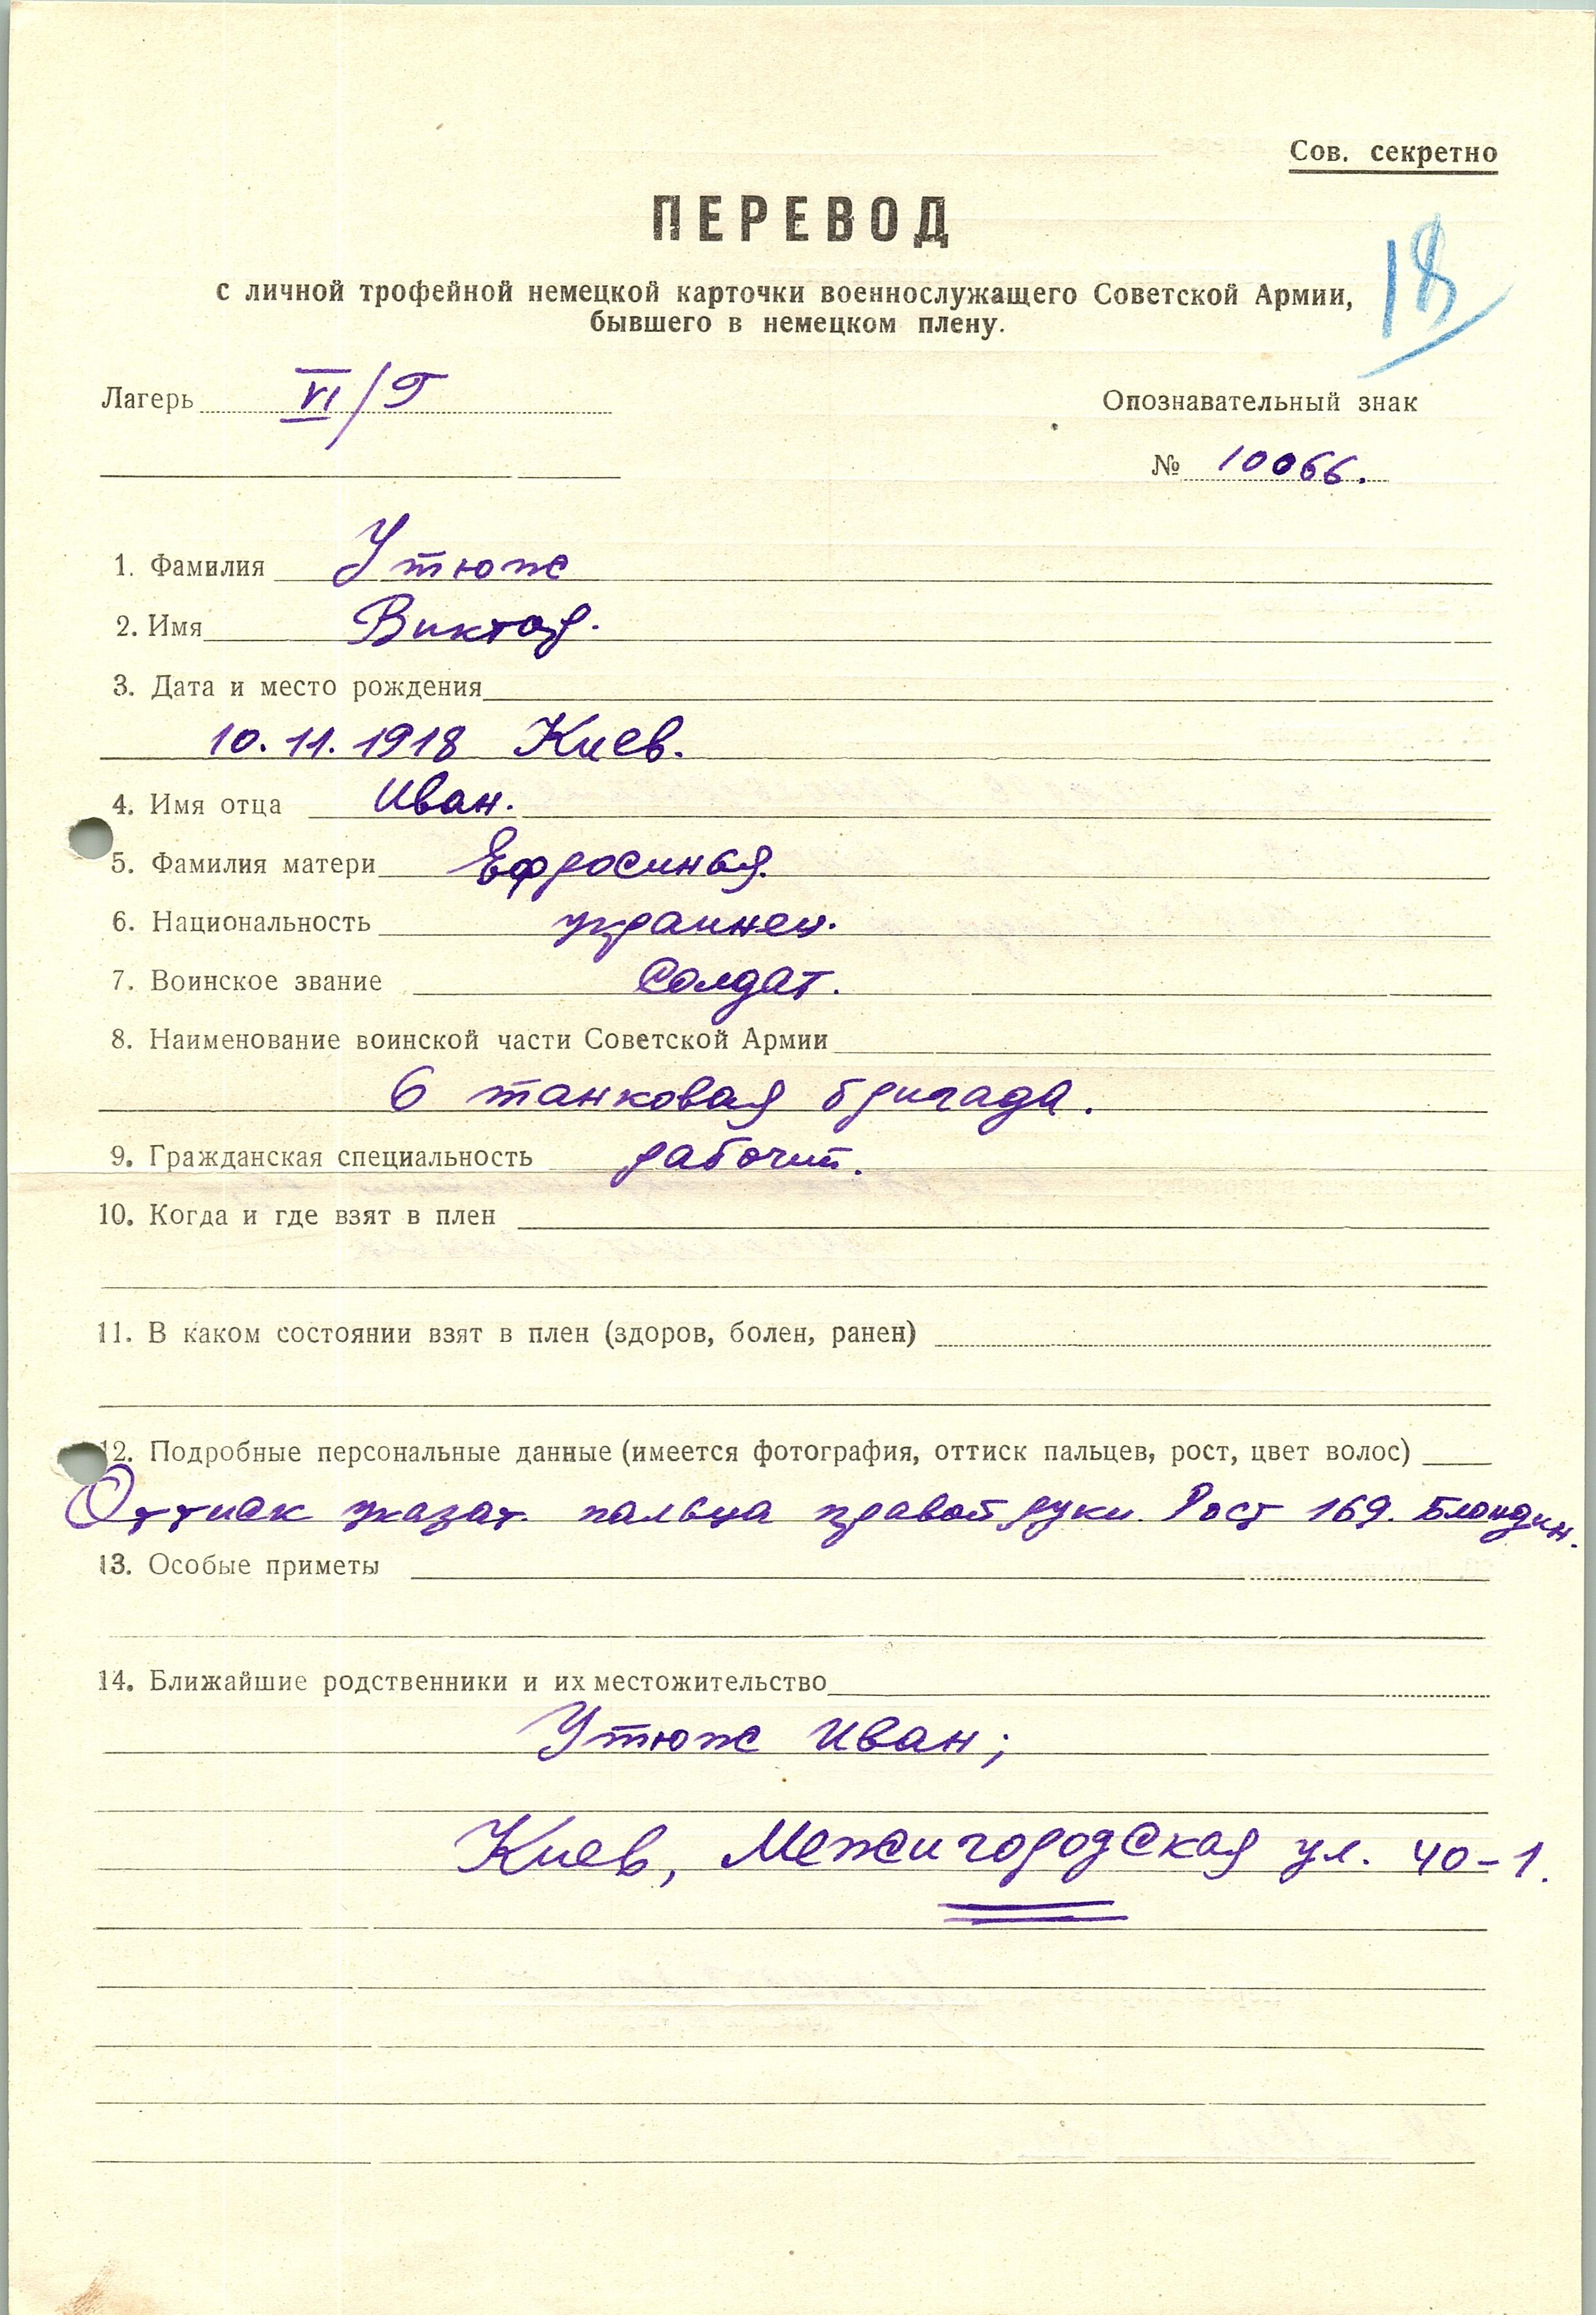 Сов. секретно
ПЕРЕВОД
18
с личной трофейной немецкой карточки военнослужащего Советской Армии,
бывшего в немецком плену.
Лагерь VI/Г
Опознавательный знак
№ 10066.
1. Фамилия Утюж
2. Имя Виктор.
3. Дата и место рождения
10.11.1918 Киев.
4. Имя отца Иван.
5. Фамилия матери Ефросинья
6. Национальность украинец.
7. Воинское звание Солдат.
8. Наименование воинской части Советской Армии
6 танковая бригада.
9. Гражданская специальность рабочий.
10. Когда и где взят в плен
11. В каком состоянии взят в плен (здоров, болен, ранен)
12. Подробные персональные данные (имеется фотография, оттиск пальцев, рост, цвет волос)
Оттиск указат. пальца правой руки. Рост 169. Блондин.
13. Особые приметы
14. Ближайшие родственники и их местожительство
Утюж Иван;
Киев, Межигородская ул. 40-1.